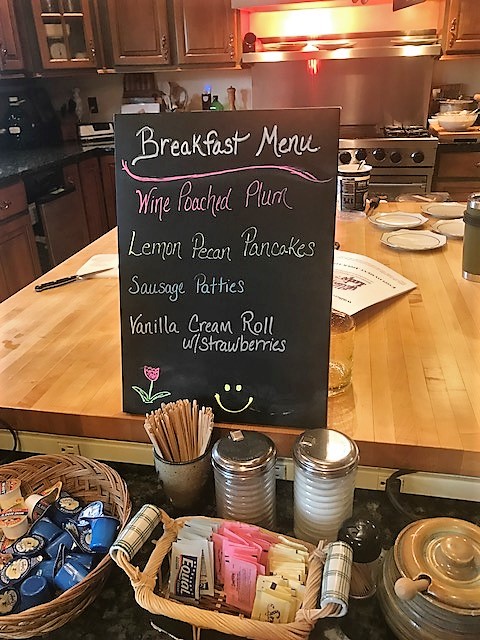 Breakfast Menu
Wine Poached Plum
Lemon Pecan Pancakes
Sausage Patties
Vanilla Cream Roll
w/strawberries